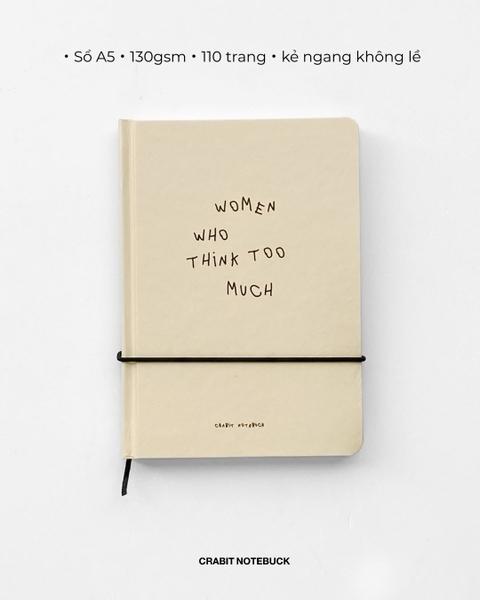 • Sổ A5 • 130gsm • 110 trang • kẻ ngang không lề
WOMEN
WHO
THINK TOO
MUCH
CRABIT NOTEBUCK
CRABIT NOTEBUCK